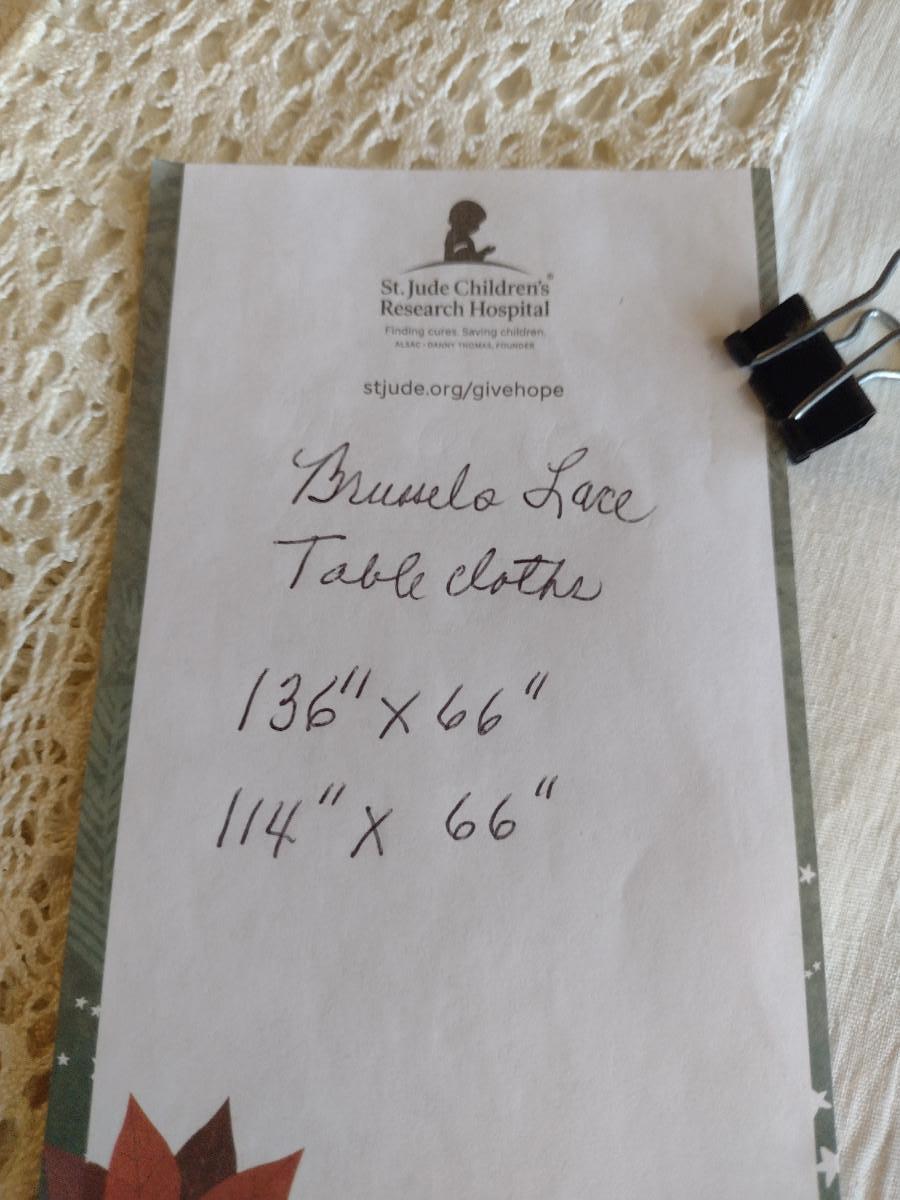 St. Jude Children's®
Research Hospital
Finding cures. Saving children.
ALSAC · DANNY THOMAS, FOUNDER
stjude.org/givehope
Brussels Lace
Table cloths
136" X 66"
114" X 66"